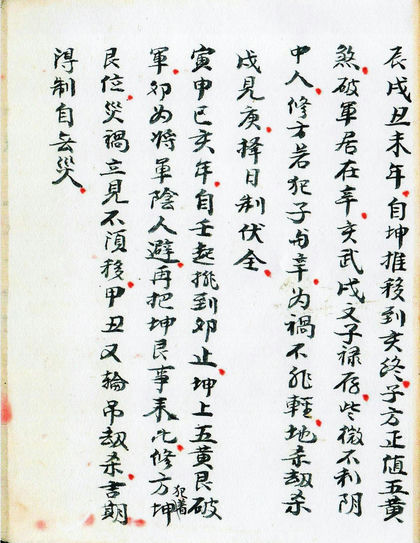 辰戌丑未年自坤推移到亥终子方正值五黄
煞破军居在辛亥武戌文子禄存些微不利阴
中人修方若犯子与辛为祸不非轻地杀劫杀
戌見庚择日制伏全
寅申巳亥年自壬起挑到卯止坤上五黄艮破
軍卯为将軍陰人避再把坤艮事来比修方坤
犯着
艮位災禍立見不須移甲丑又輪吊劫杀吉期
得制自无災